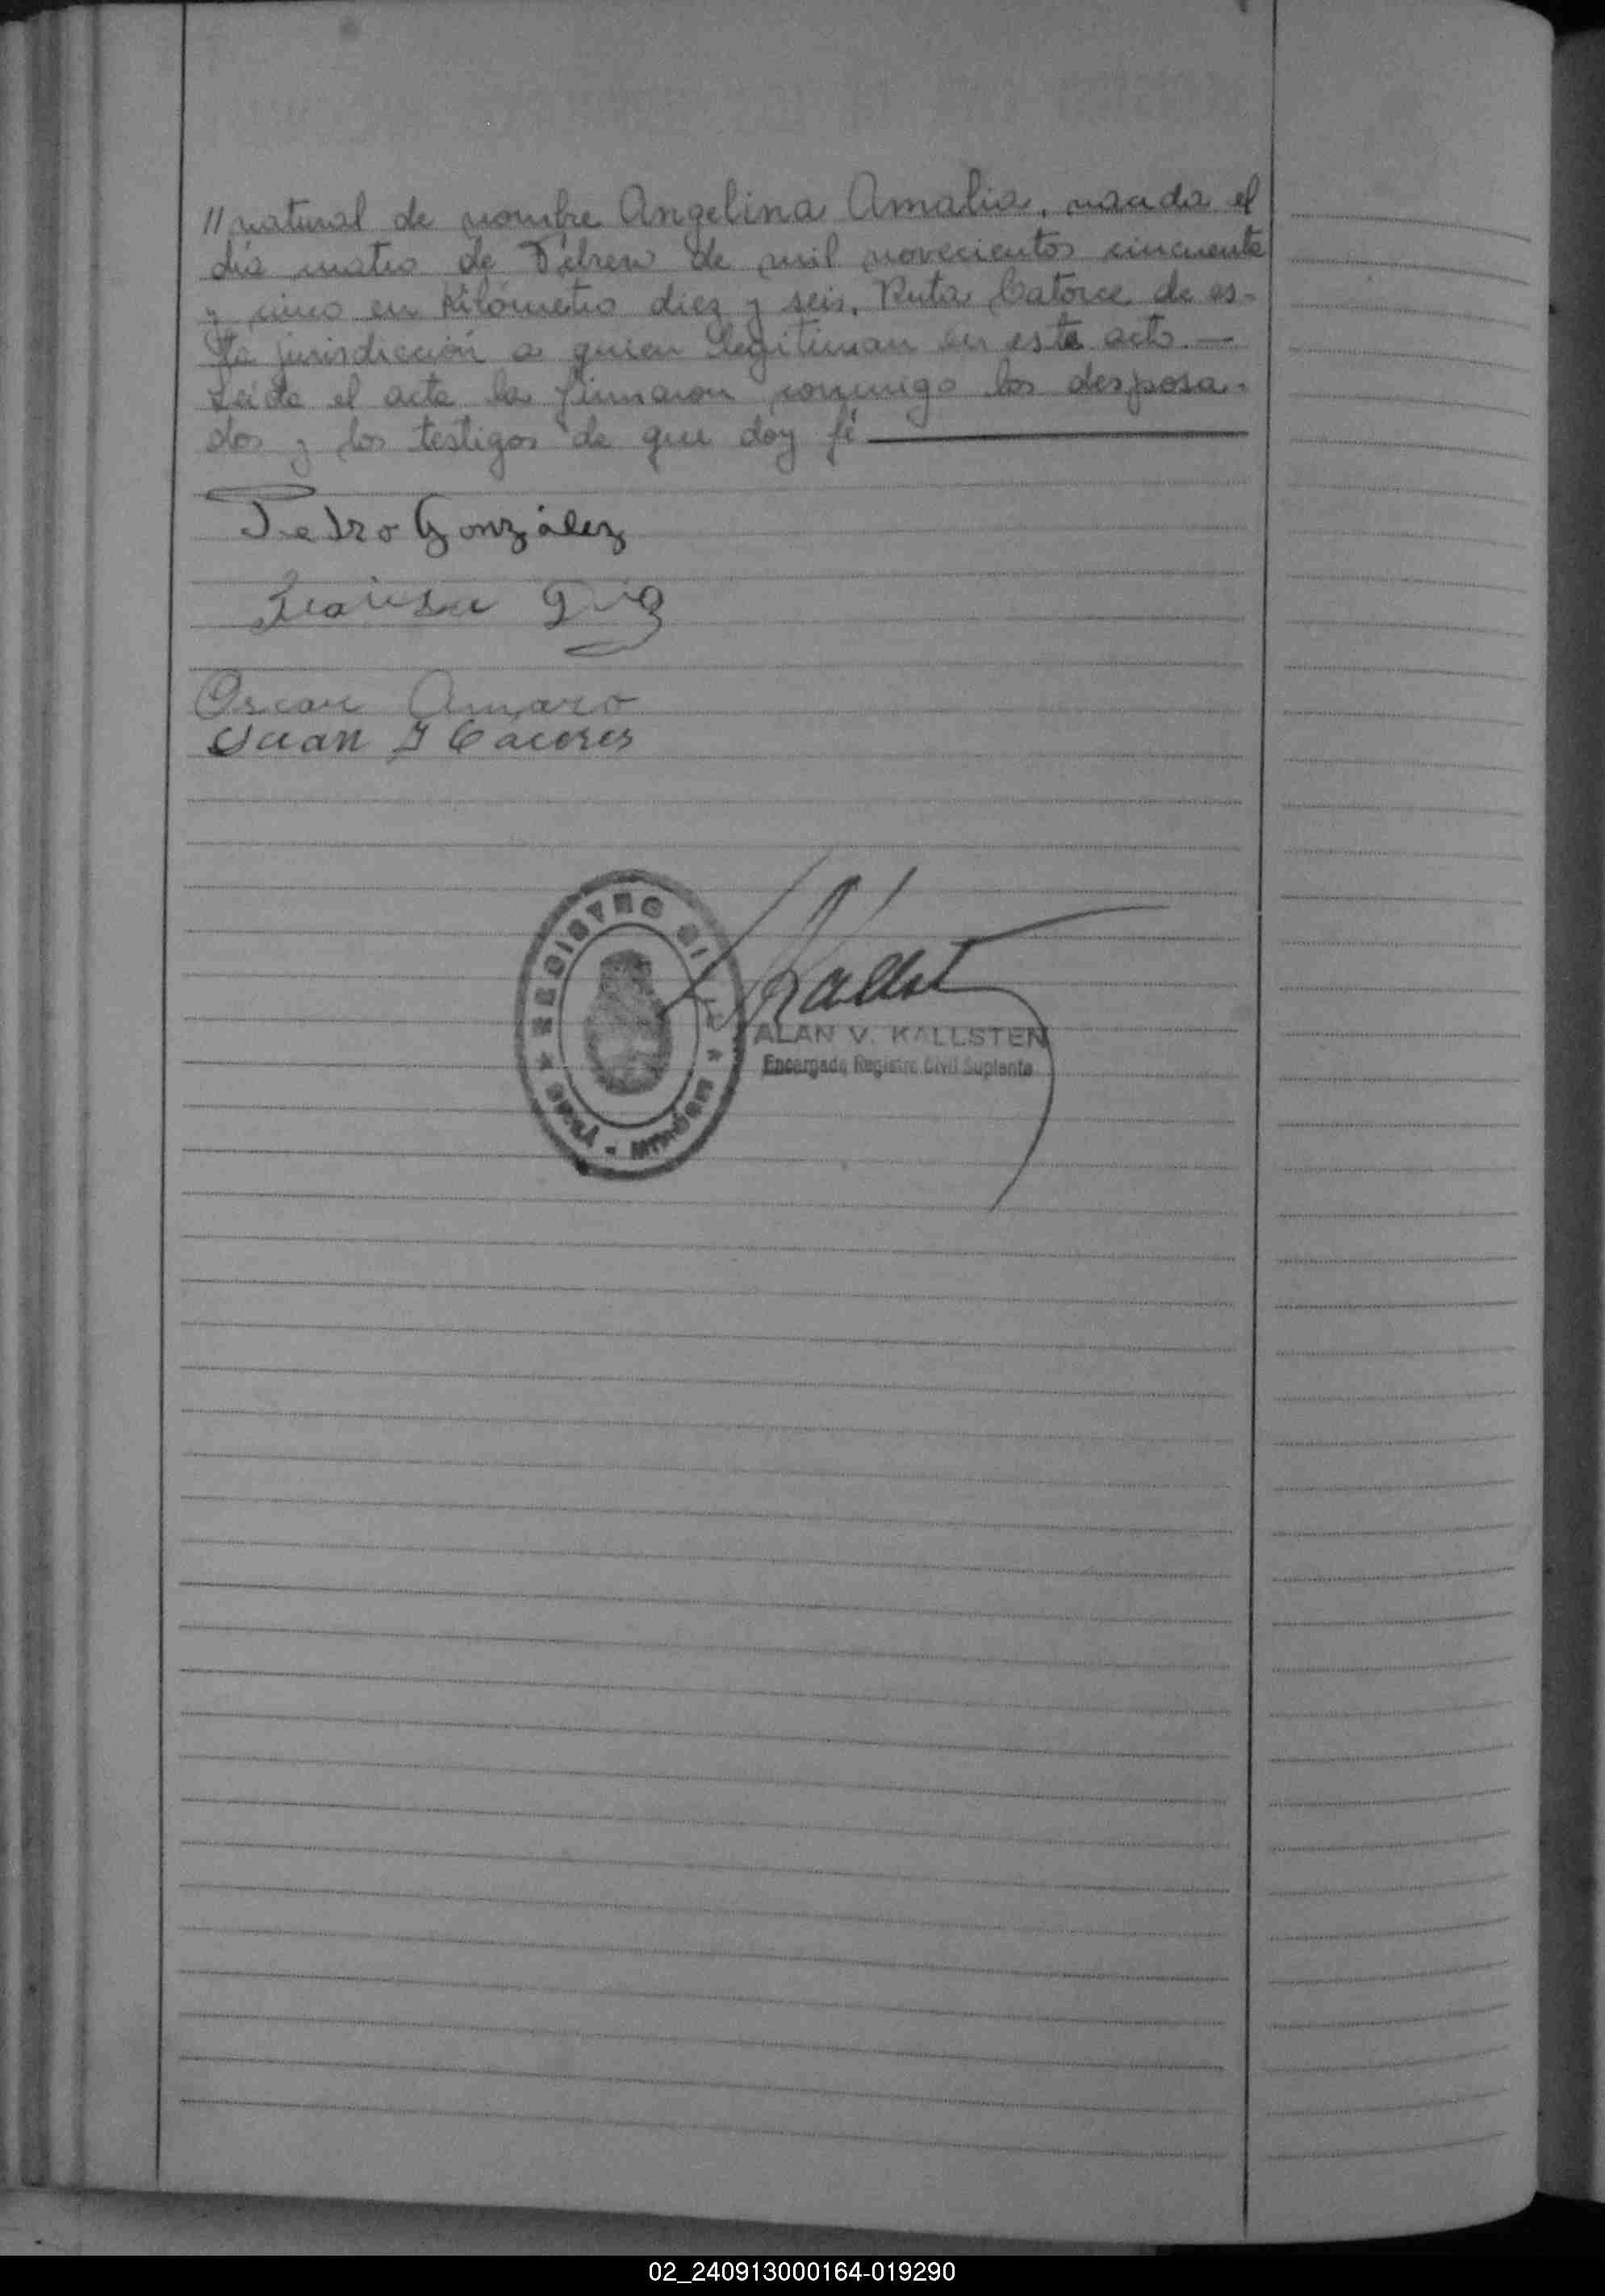 // natural de nombre Angelina Amalia, nacida el
día cuatro de Febrero de mil novecientos cincuenta
y cinco en Kilómetro diez y seis, Ruta Catorce de es-
ta jurisdicción a quien legitiman en este acto. —
Leida el acta la firmaron conmigo los desposa-
dos y los testigos de que doy fé
Pedro González
Oscar Amaro
Juan J Caceres
REGISTRO CI
ALAN V. KALLSTEN
Encargado Registro Civil Suplente
02_240913000164-019290